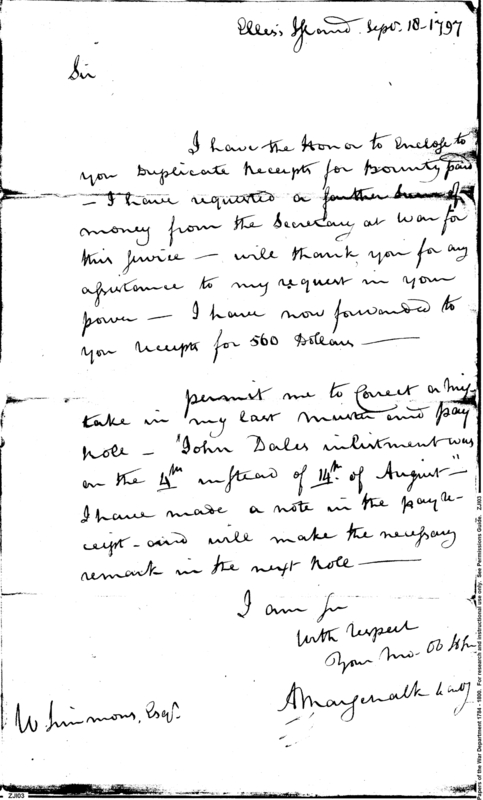 Elless Island Sepr. 18-1797
Sir
I have the Honor to Enclose to
you Duplicate Receipts for Bounty paid
- I have requested a further Sum of
money from the Secretary at War for
this service - will thank you for any
assistance to my request in your
power - I have now forwarded to
you receipts for 560 Dollars -
permit me to Correct a mis-
take in my last muster and pay
Role - "John Dales inlistment was
on the 4th instead of 14th. of August" -
I have made a note in the pay re-
ceipt - and will make the necessary
remark in the next Role -
I am Sir
With respect
Your Mo. Ob
A Marschalk
W Simmons, Esqr.
ZJI03
Papers of the War Department 1784 - 1800. For research and instructional use only. See Permissions Guide. ZJI03